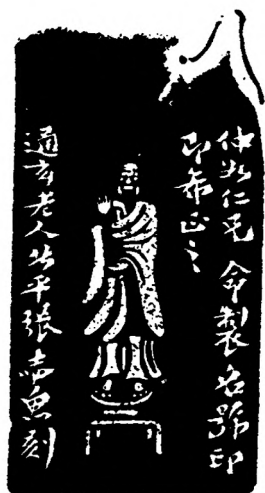 仲如仁兄 命製名號印
即希正之
通玄老人北平張志魚刻